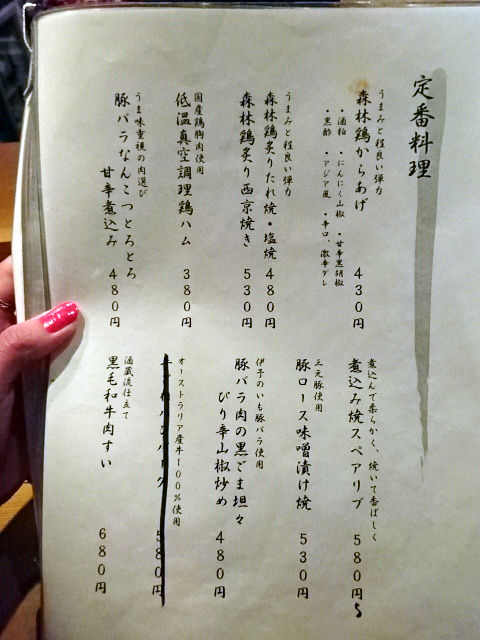 定番料理
うまみと程良い弾力
森林鶏からあげ 430円
・酒粕 ・にんにく山椒 ・甘辛黒胡椒
・黒酢 ・アジア風 ・辛口、激辛ダレ
うまみと程良い弾力
森林鶏炙りたれ焼・塩焼 480円
森林鶏炙り西京焼き 530円
国産鶏胸肉使用
低温真空調理鶏ハム 380円
うま味重視の肉選び
豚バラなんこつとろとろ
甘辛煮込み 480円
煮込んで柔らかく、焼いて香ばしく
煮込み焼スペアリブ 580円〜
三元豚使用
豚ロース味噌漬け焼 530円
伊予のいも豚バラ使用
豚バラ肉の黒ごま坦々
ぴり辛山椒炒め 480円
オーストラリア産牛100%使用
580円
酒蔵流仕立て
黒毛和牛肉すい 680円